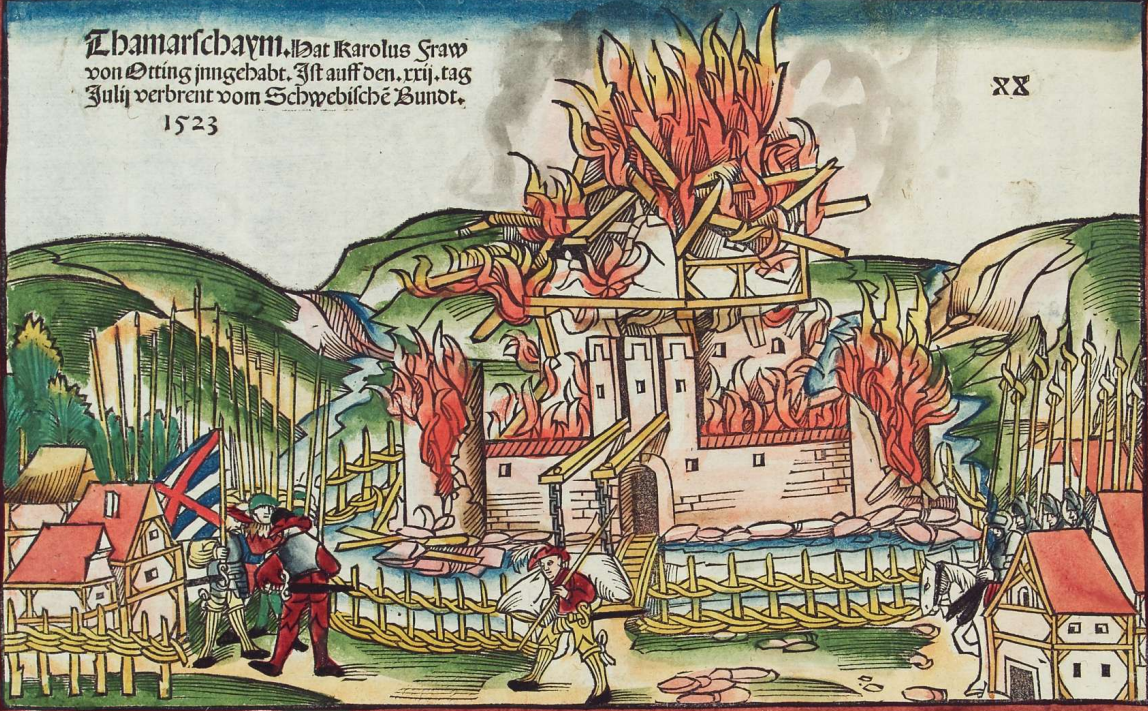 Thamarschaym. Hat Karolus Fraw
von Otting jnngehabt. Ist auff den. xxij. tag
Julij verbrent vom Schwebischē Bundt.
1523
XX